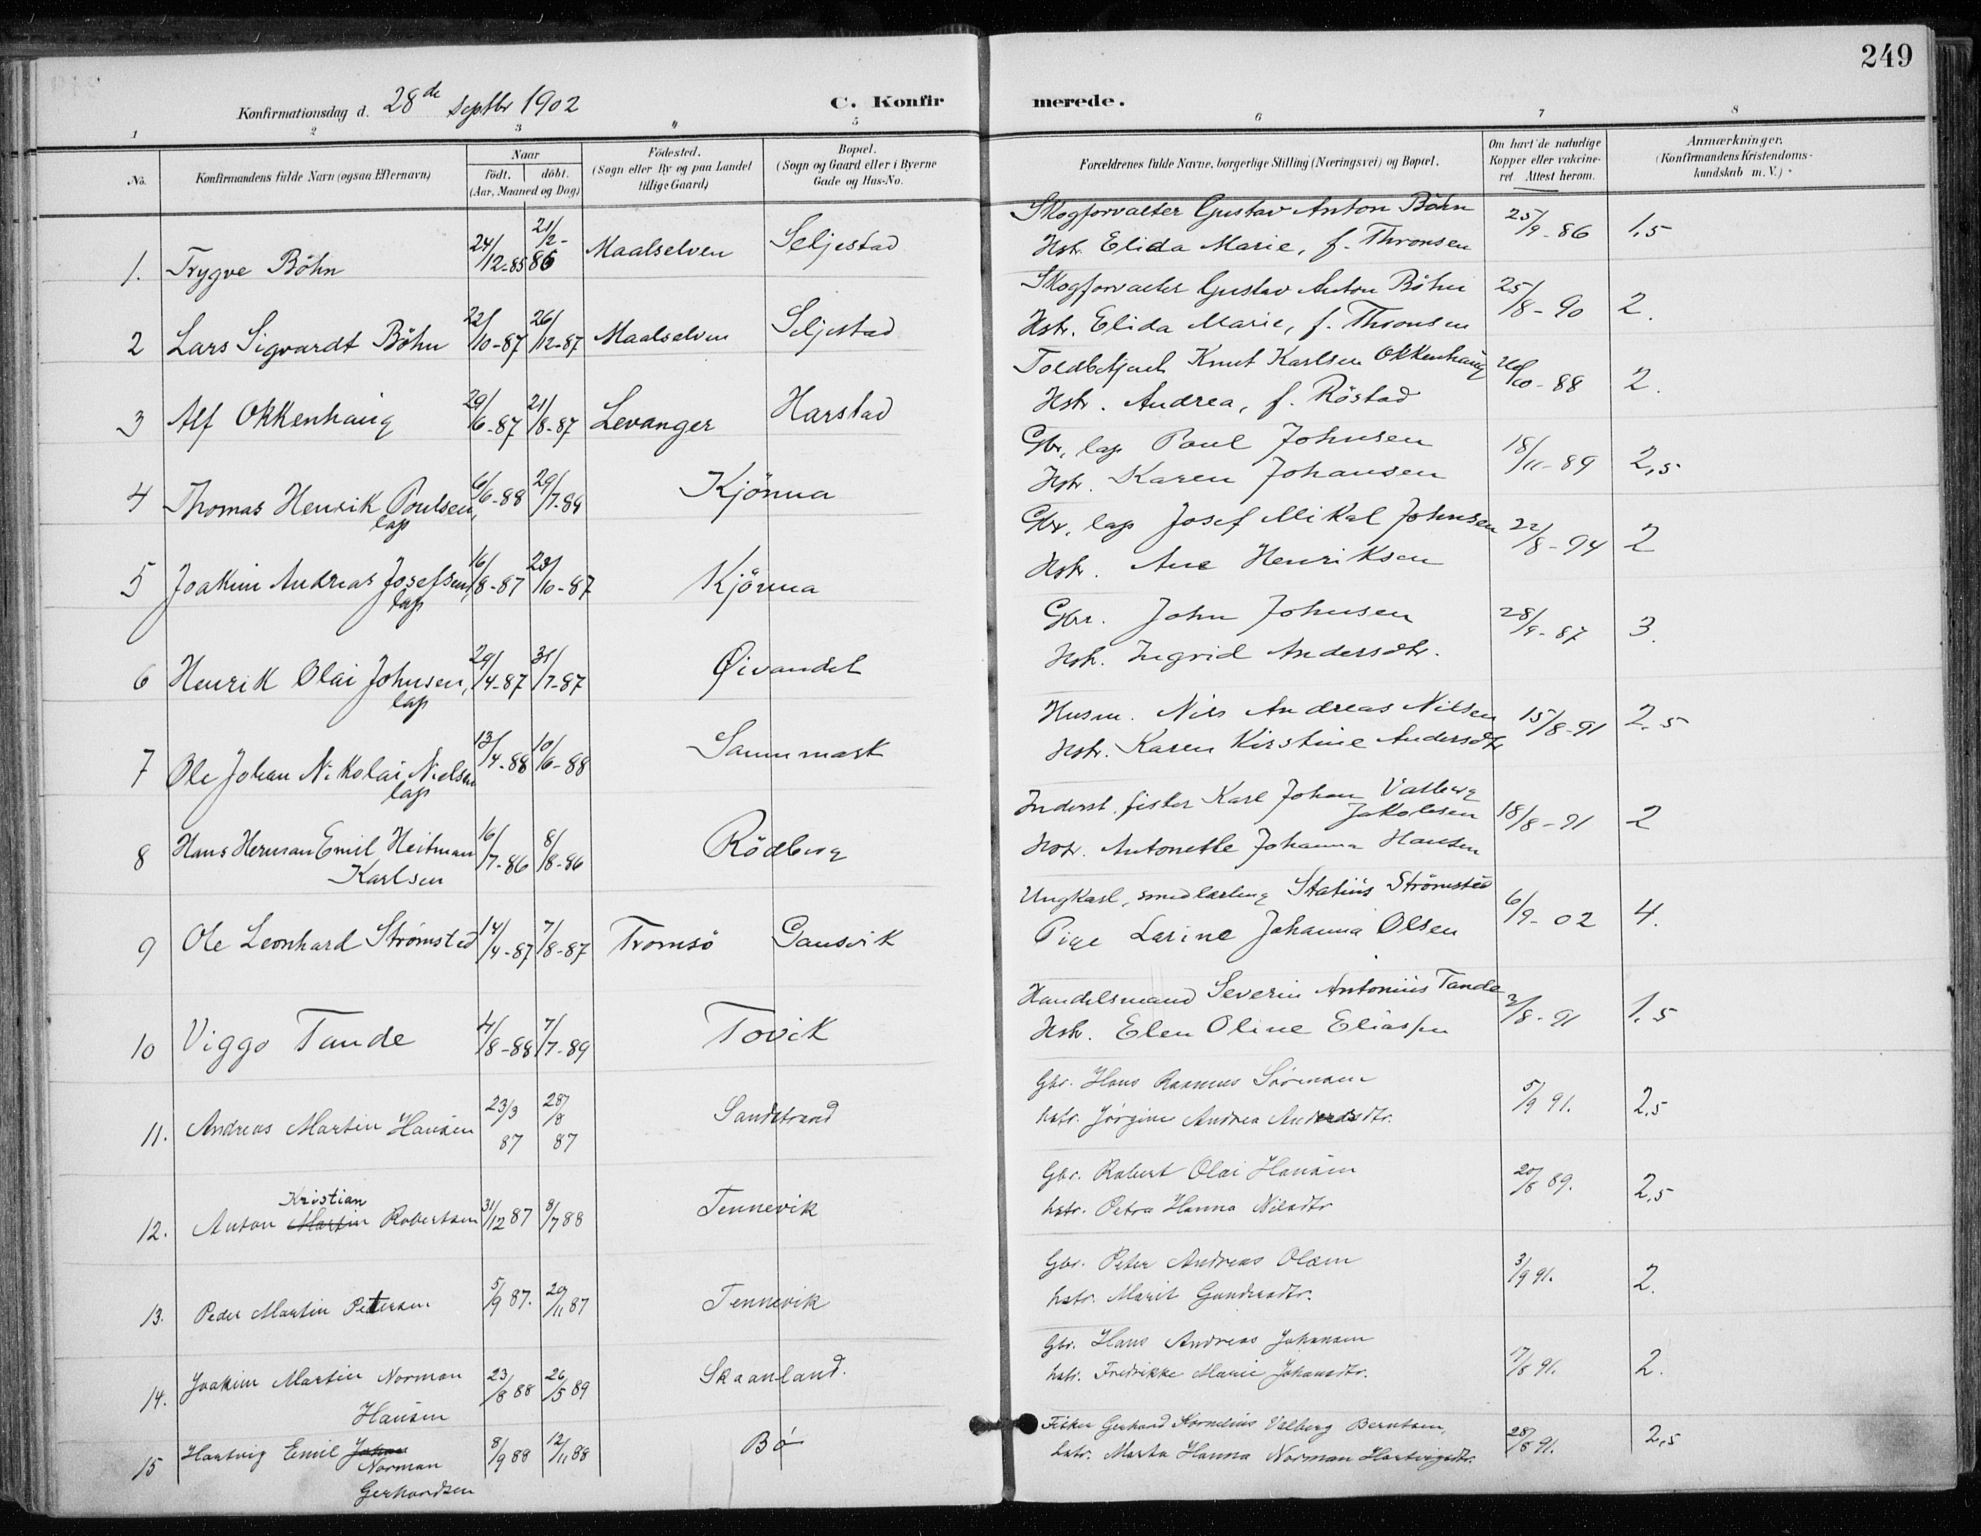 249
Konfirmationsdag d. 28de Septbr 1902
C. Konfirmerede.
1 2 3 4 5 6 7 8
No. Konfirmandens fulde Navn (ogsaa Efternavn) Naar født. døbt. (Aar, Maaned og Dag) Fødested. (Sogn eller By og paa Landet tillige Gaard) Bopæl. (Sogn og Gaard eller i Byerne Gade og Hus-No. Forældrenes fulde Navne, borgerlige Stilling (Næringsvei) og Bopæl. Om havt de naturlige Kopper eller vakcineret Attest herom. Anmærkninger. (Konfirmandens Kristendomskundskab m. V.)
1. Trygve Böhn 24/12-85 21/2-86 Maalselven Seljestad Skogforvalter Gustav Anton Böhn 25/9-86 1.5
Hstr. Elida Marie, f. Thronsen
2 Lars Sigvardt Böhn 22/10-87 26/12-87 Maalselven Seljestad Skogforvalter Gustav Anton Böhn 25/8-90 2.
Hstr. Elida Marie, f. Thronsen
3 Alf Okkenhaug 29/6-87 21/8-87 Levanger Harstad Toldbetjent Knut Karlsen Okkenhaug /10-88 2.
Hstr. Andrea, f. Röstad
4 Thomas Henrik Poulsen, 6/6-88 29/7-89 Kjönna Gbr, lap Poul Johnsen 18/11-89 2,5
lap Hstr. Karen Johansen
5 Joakim Andreas Josefsen, 16/8-87 23/10-87 Kjönna Gbr, lap Josef Mikal Johnsen 22/8-94 2
lap Hstr. Ane Henriksen
6 Henrik Olai Johnsen, 29/4-87 31/7-87 Øivandet Gbr. John Johnsen 28/9-87 3.
lap Hstr. Ingrid Andersdtr.
7 Ole Johan Nikolai Nielsen 13/4-88 10/6-88 Sammark Husm. Nils Andreas Nilsen 15/8-91 2.5
lap Hstr. Karen Kirstine Andersdtr
8 Hans Herman Emil Heitman 16/7-86 8/8-86 Rödberg Inderst. fisker Karl Johan Valberg Jakobsen 18/8-91 2
Karlsen Hstr. Antonette Johanna Hansen
9 Ole Leonhard Strømsted 14/4-87 7/8-87 Tromsö Gausvik Ungkarl, smedlærling Statius Strömsted 6/9-02 4.
Pige Larine Johanna Olsen
10 Viggo Tande 4/8-88 7/7-89 Tovik Handelsmand Severin Antonius Tande 2/8-91 1.5
Hstr. Elen Oline Eliassen
11. Andreas Martin Hansen 23/3 87 28/8 87 Sandstrand Gbr. Hans Rasmus Sörensen 5/9 91. 2,5
hstr. Jörgine Andrea Andersdtr.
12. Anton Martin Kristian Robertsen 31/12 87 8/7 88 Tennevik Gbr. Robert Olai Hansen 20/8 89. 2,5
hstr. Petra Hanna Nilsdtr
13. Peder Martin Petersen 5/9 87. 20/11 87 Tennevik Gbr. Peter Andreas Olsen 3/9 91. 2.
hstr. Marit Gundersdtr.
14. Joakim Martin Norman 23/8 88 26/5 89 Skaanland. Gbr. Hans Andreas Johansen 17/8 91. 2.
Hansen hstr. Fredrikke Marie Johansdtr.
15 Hartvig Emil Johan 8/9 88 12/11 88 Bö Fisker Gerhard Kornelius Valberg Berntsen, 28/8 91. 2,5
Norman hstr. Marta Hanna Norman Hartvigsdtr.
Gerhardsen